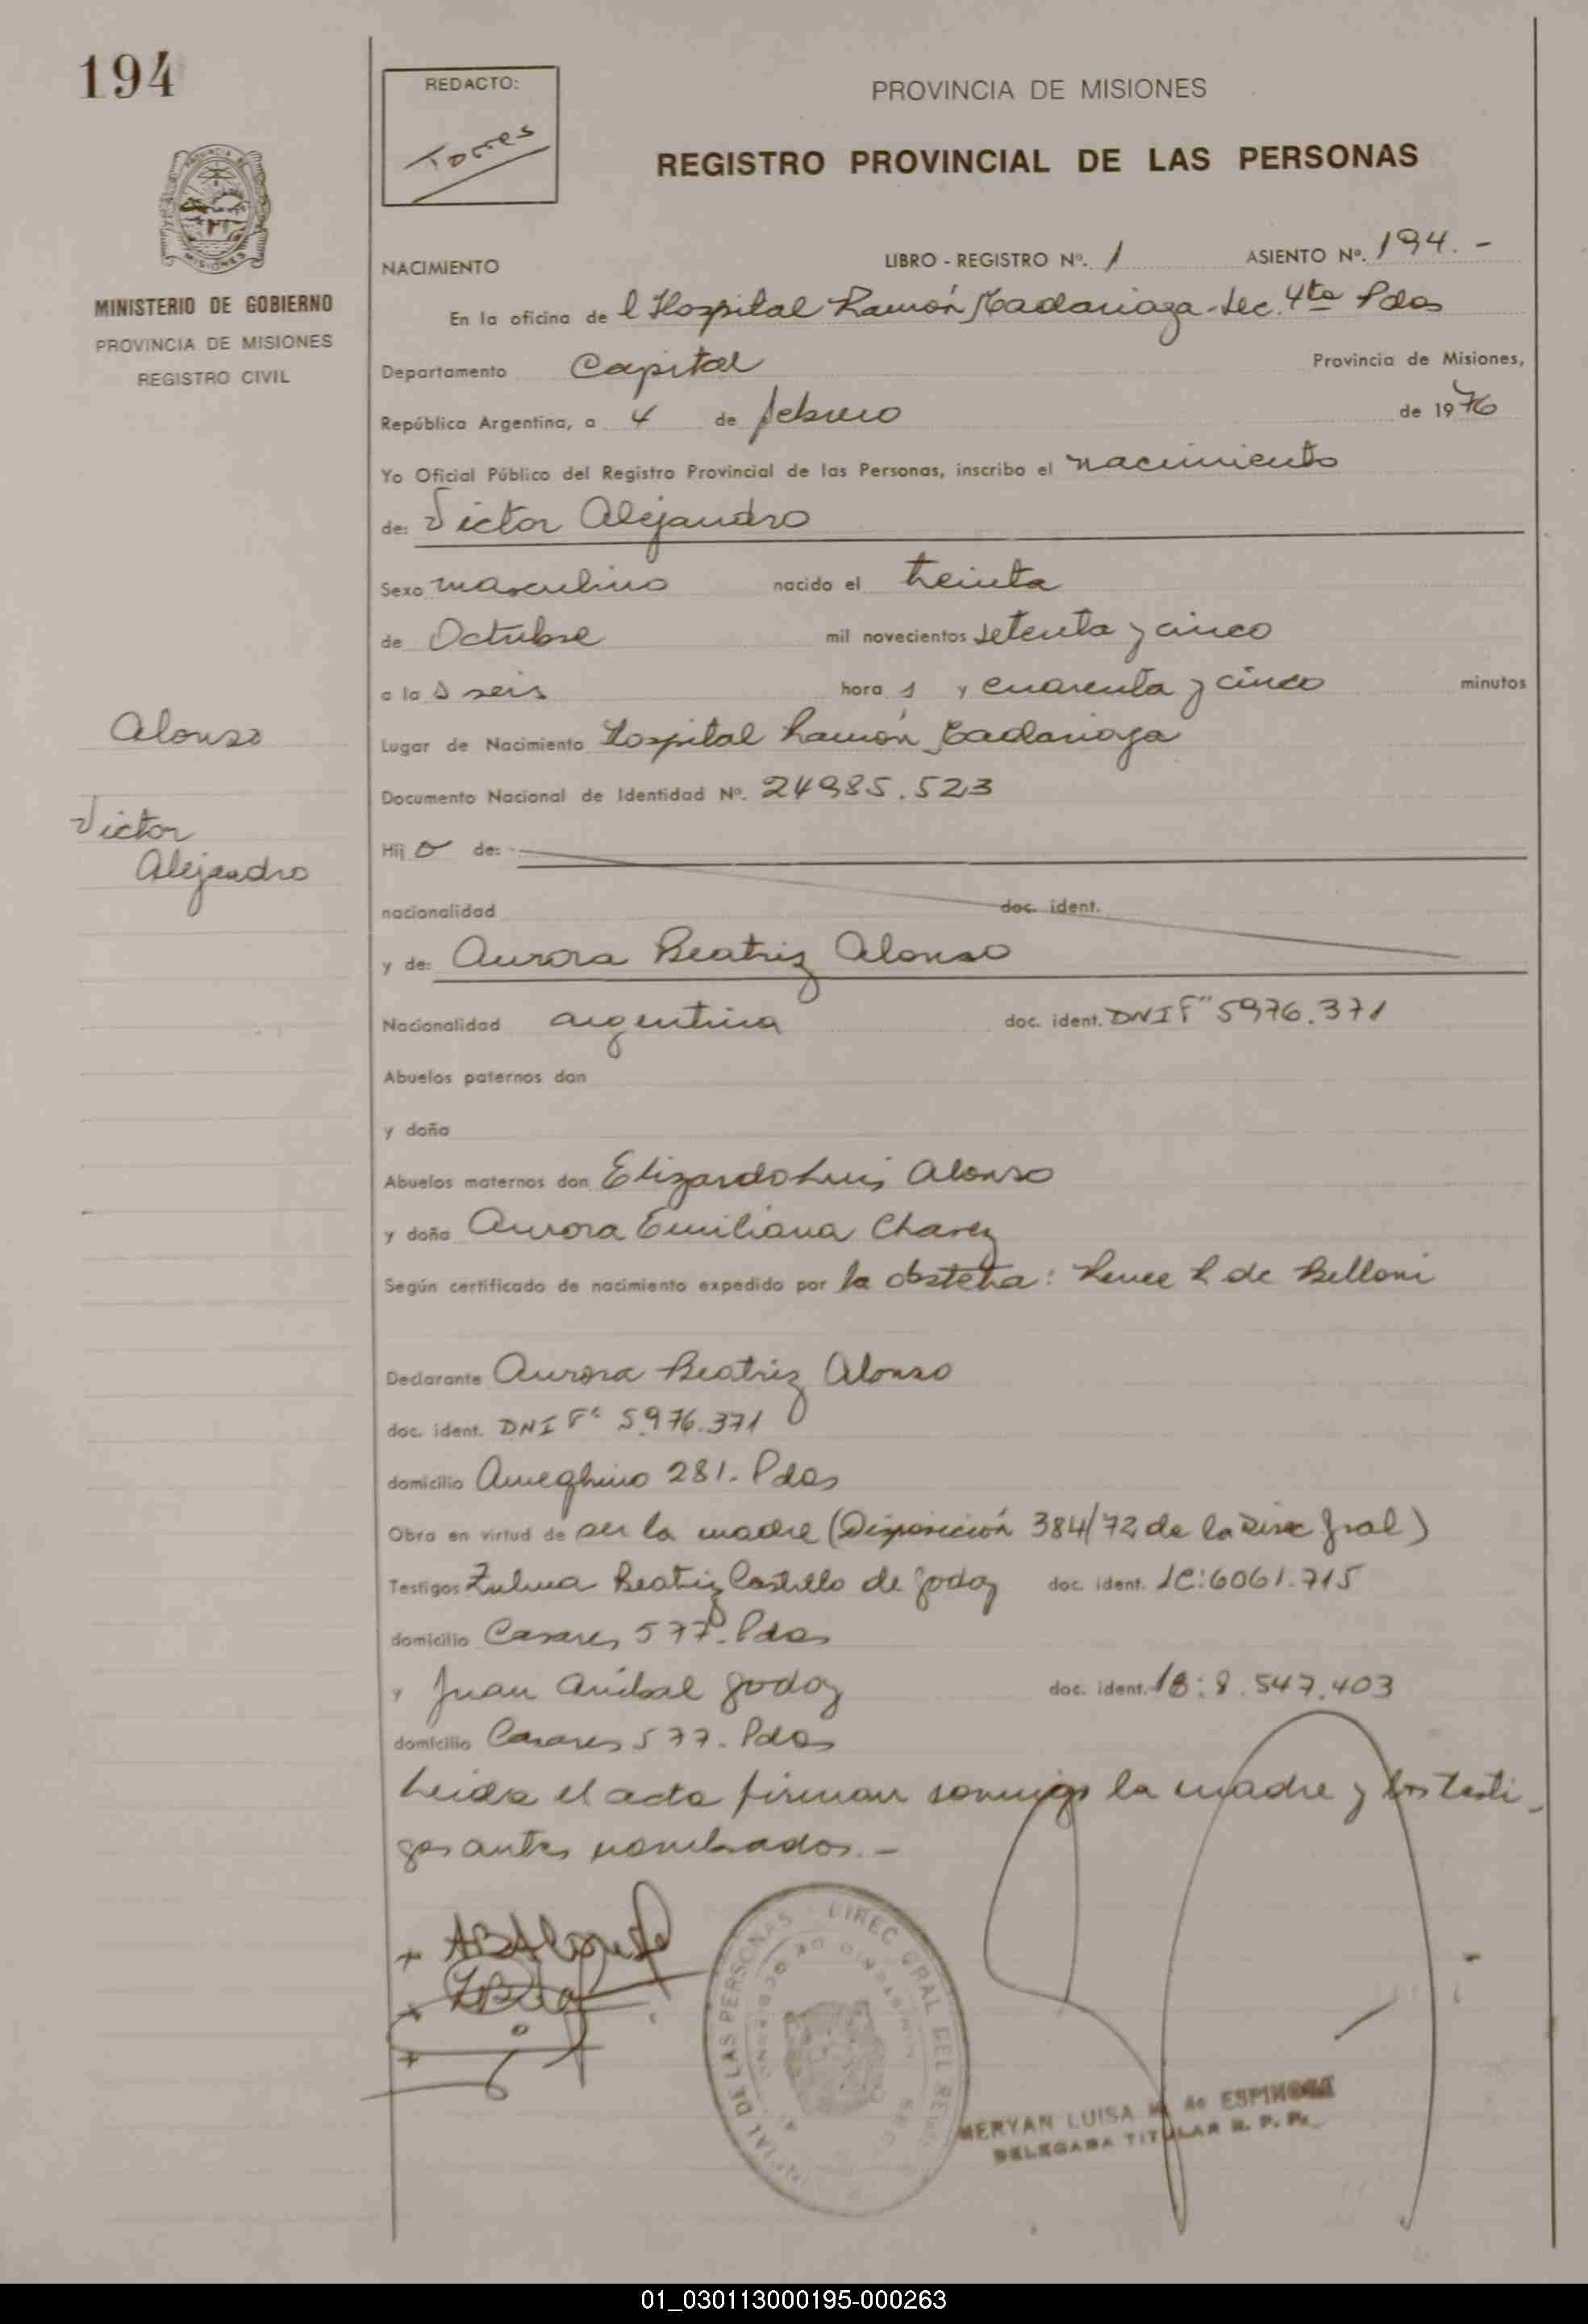 194
REDACTO:
Torres
PROVINCIA DE MISIONES
REGISTRO PROVINCIAL DE LAS PERSONAS
MINISTERIO DE GOBIERNO
PROVINCIA DE MISIONES
REGISTRO CIVIL
NACIMIENTO LIBRO - REGISTRO Nº. 1 ASIENTO Nº. 194.-
En la oficina de l Hospital Ramón Madariaga-Sec. 4ta Pdas
Departamento Capital Provincia de Misiones,
República Argentina, a 4 de febrero de 1976
Yo Oficial Público del Registro Provincial de las Personas, inscribo el nacimiento
de: Victor Alejandro
Sexo masculino nacido el treinta
de Octubre mil novecientos setenta y cinco
a la s seis hora s y cuarenta y cinco minutos
Alonso
Victor
Alejandro
Lugar de Nacimiento Hospital Ramón Madariaga
Documento Nacional de Identidad Nº. 24985.523
Hij o de:
nacionalidad doc. ident.
y de: Aurora Beatriz Alonso
Nacionalidad argentina doc. ident. DNI F" 5976.371
Abuelos paternos don
y doña
Abuelos maternos don Elizardo Luis Alonso
y doña Aurora Emiliana Chavez
Según certificado de nacimiento expedido por la obstetra: Renee R de Belloni
Declarante Aurora Beatriz Alonso
doc. ident. DNI F" 5.976.371
domicilio Ameghino 281. Pdas
Obra en virtud de ser la madre (Disposición 384/72 de la Direc Gral)
Testigos Zulma Beatriz Castillo de Godoy doc. ident. LC:6061.715
domicilio Casares 577. Pdas
y Juan Anibal Godoy doc. ident. 8.547.403
domicilio Casares 577. Pdas
Leida el acta firman conmigo la madre y los testi
gos antes nombrados.-
DIREC GRAL DEL
DE LAS PERSONAS
MERYAN LUISA M. de ESPINOSA
DELEGADA TITULAR R. P. P.
01_030113000195-000263